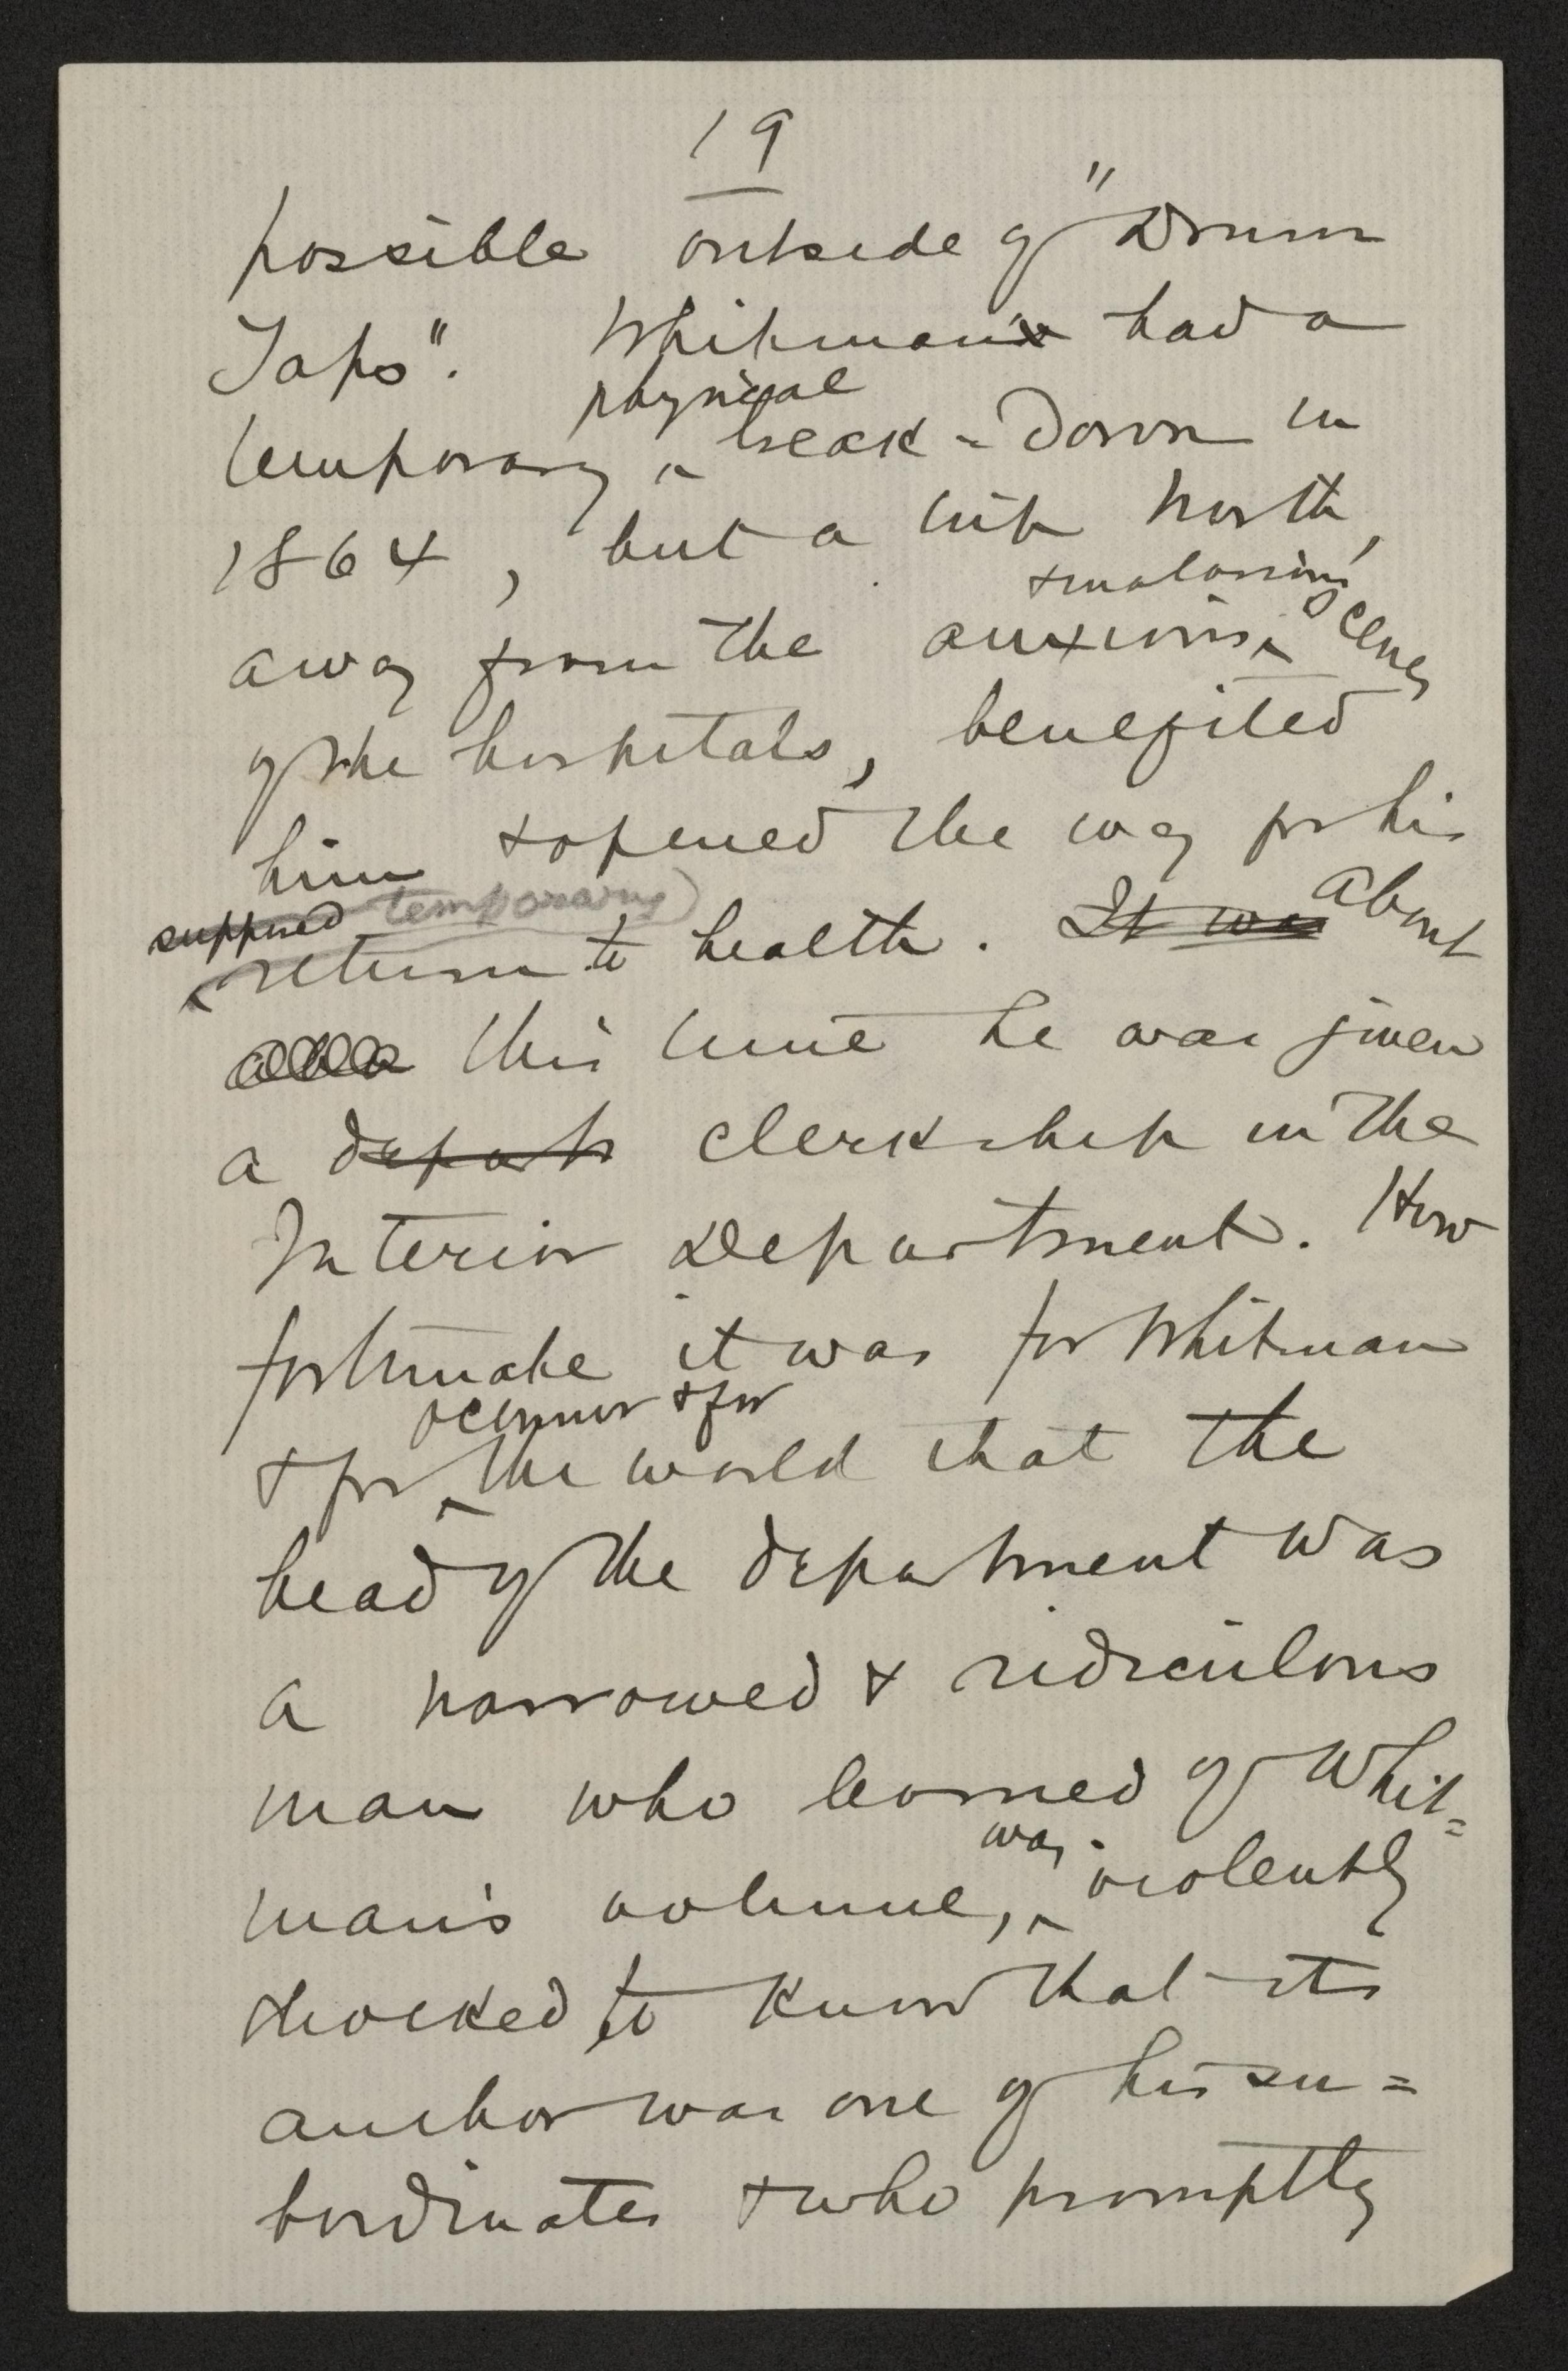 19
possible outside of "Drum
Taps". Whitman had a
physical
temporary ^ break-down in
1864, but a trip North,
& malarious
away from the anxious ^ scenes
of the hospitals, benefited
him & opened the way for his
supposed temporary
^ return to health. It was About
this time he was given
a depart clerkship in the
Interior Department. How
fortunate it was for Whitman
OConnor & for
& for ^ the world that the
head of the department was
a narrowed & ridiculous
man who learned of Whit=
was
man's volume, ^ violently
shocked to know that its
author was one of his su=
bordinates & who promptly